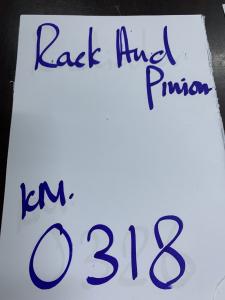 Rack And
Pinion
KM.
0318